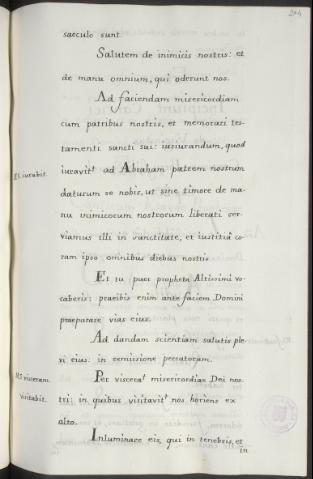 294
saeculo sunt.
Salutem de inimicis nostris: et
de manu omnium, qui oderunt nos.
Ad faciendam misericordiam
cum patribus nostris, et memorari tes-
tamenti sancti sui: iusiurandum, quod
iuravit ad Abraham patrem nostrum
daturum se nobis, ut sine timore de ma-
nu inimicorum nostrorum liberati ser-
viamus illi in sanctitate, et iustitiâ co-
ram ipso omnibus diebus nostris
Et tu puer propheta Altissimi vo-
caberis: praeibis enim ante faciem Domini
praeparare vias eius.
Ad dandam scientiam salutis ple-
vi eius: in remissione peccatorum.
Per viscera misericordiae Dei nos-
tri: in quibus visitavit nos horiens ex
alto.
Inluminare eis, qui in tenebris, et
in
visitabit.